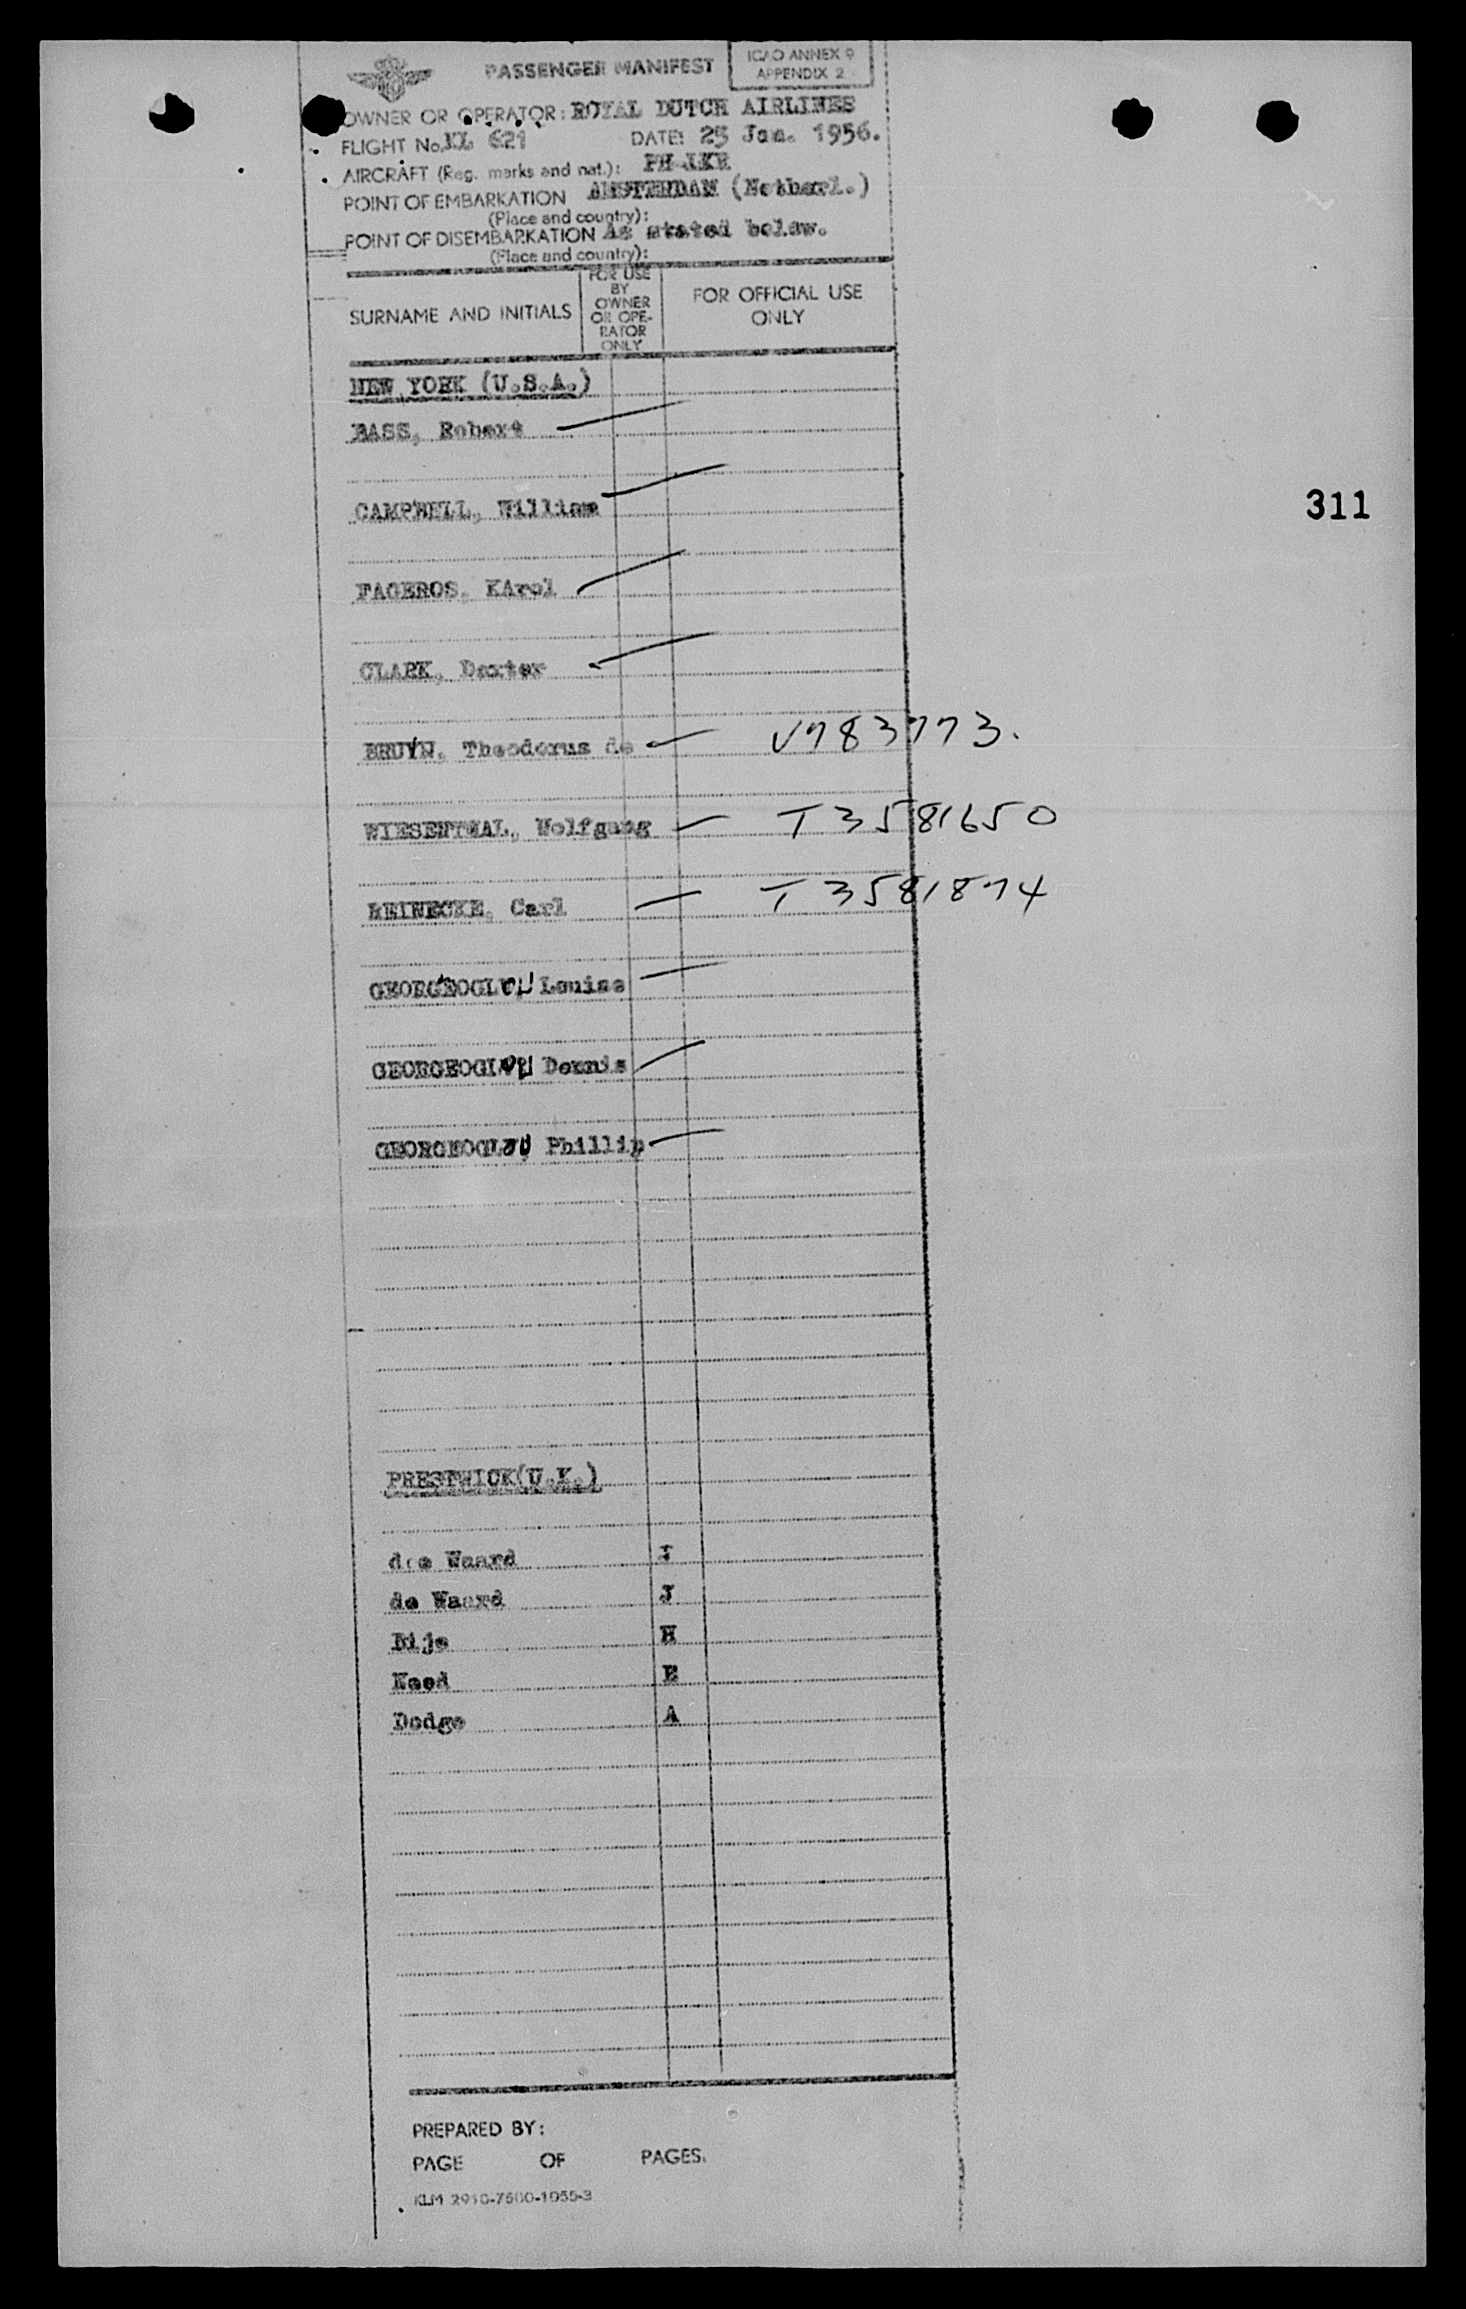 PASSENGER MANIFEST
ICAO ANNEX 9
APPENDIX 2
OWNER OR OPERATOR: ROYAL DUTCH AIRLINES
FLIGHT No. KL 621 DATE: 25 Jan. 1956.
AIRCRAFT (Reg. marks and nat.): PH-LKR
POINT OF EMBARKATION AMSTERDAM (Netherl.)
(Place and country):
POINT OF DISEMBARKATION As stated below.
(Place and country):
SURNAME AND INITIALS
FOR USE
BY
OWNER
OR OPE-
RATOR
ONLY
FOR OFFICIAL USE
ONLY
NEW YORK (U.S.A.)
BASS, Robert
CAMPBELL, William
311
FAGEROS, KArol
CLARK, Dexter
BRUYN, Theodorus de V783773.
WIESENTHAL, Wolfgang T3581650
REINECKE, Carl T3581874
GEORGEOGLOU, Louise
GEORGEOGLOU Dennis
GEORGEOGLOU Phillip
PRESTWICK(U.K.)
Waard
de Waard J
H
E
Dodge A
PREPARED BY:
PAGE OF PAGES.
KLM 2910-7500-1055-3